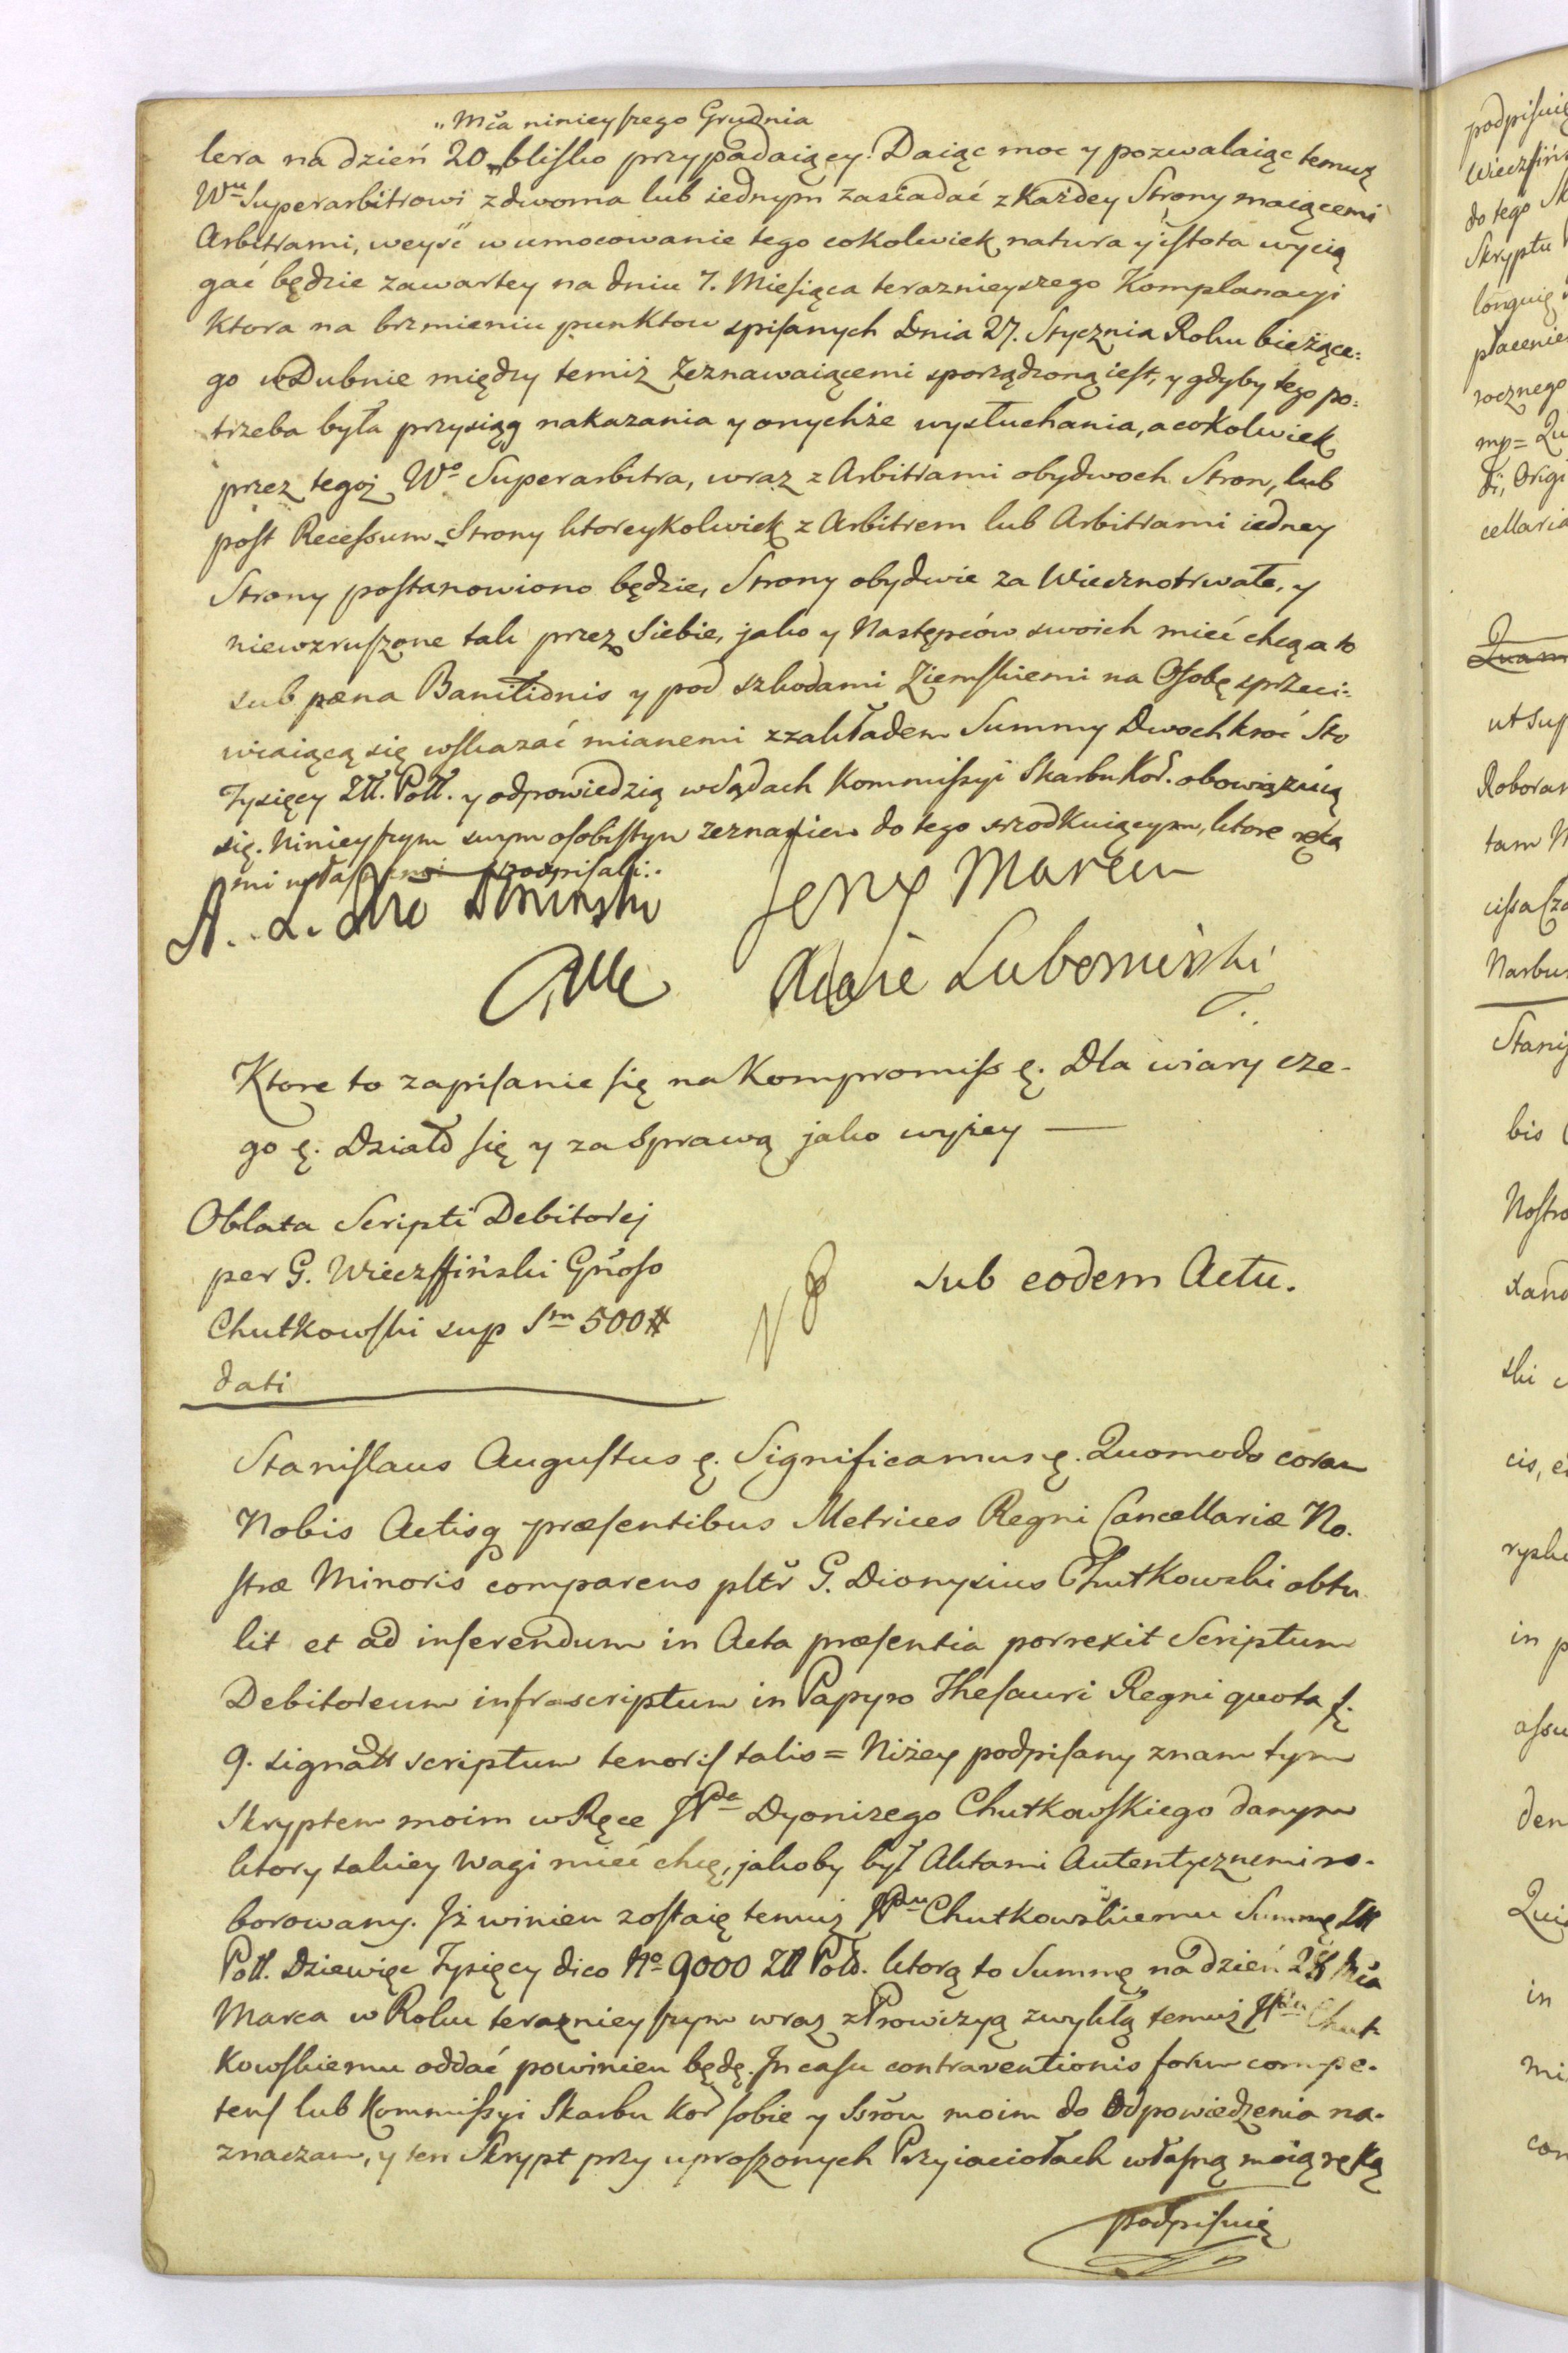 „Mca ninieyszego Grudnia
lera na dzień 20 „ blisko przypadaiący. Daiąc moc y pozwalaiąc temuż
Wu Superarbitrowi z dwoma lub iednym zasiadać z Każdey Strony maiącemi
Arbitrami, weyść w umocowanie tego cokolwiek natura y istota wycią
gać będzie zawartey na dniu 7. Miesiąca teraznieyszego Komplanacyi
Ktora na brzmieniu punktow spisanych Dnia 27. Stycznia Roku bieżące:
go w Dubnie między temiż Zeznawaiącemi sporządzoną iest, y gdyby tego po:
trzeba była przysiąg nakazania y onychże wysłuchania, a cokolwiek
przez tegoż Wo Superarbitra, wraz z Arbitrami obydwoch Stron, lub
post Recessum Strony ktoreykolwiek z Arbitrem lub Arbitrami iedney
Strony postanowiono będzie, Strony obydwie za Wiecznotrwałe, y
niewzruszone tak przez Siebie, jako y Następców swoich mieć chcą a to
sub pæna Banitionis y pod szkodami Ziemskiemi na Osobę sprzeci:
wiaiącą się wskazać mianemi z zakładem Summy Dwochkroć Sto
Tysięcy Złł. Poll. y odpowiedzią w Sądach Kommissyi Skarbu Kor. obowiązuią
się. Ninieyszym swym osobistym zeznaniem do tego srzodkuiącym, ktore ręka
mi własnemi podpisali:.
A. L. Xże Poninski Jerzy Marcin
Xiąże Lubomirski
Ktore to zapisanie się na Kompromiss ę. Dla wiary cze-
go ę. Działo się y za Sprawą jako wyżey —
Oblata Scripti Debitorej
per G. Wieczffiński Gnoso
Chutkowski sup Sm 500 #
dati
sub eodem Actu.
Stanislaus Augustus ę. Significamus ę. Quomodo coram
Nobis Actisq præsentibus Metrices Regni Cancellariæ No.
stræ Minoris comparens pltr G. Dionysius Chutkowski obtu
lit et ad inserendum in Acta præsentia porrexit Scriptum
Debitoreum infrascriptum in Papyro Thesauri Regni quota f.
9. signato scriptum tenoris talis = Niżey podpisany znam tym
Skryptem moim w Ręce JPa Dyonizego Chutkowskiego danym
ktory takiey Wagi mieć chcę, jakoby był Aktami Autentycznemi ro-
borowany. Iż winien zostaię temuż JPu Chutkowskiemu Summę Złł
Poll. Dziewięć Tysięcy dico No 9000 Złł Poll. ktorą to Summę na dzień Mca
Marca w Roku teraznieyszym wraz z Prowizyą zwykłą temuż JPu Chut
Kowskiemu oddać powinien będę. In casu contraventionis forum compe-
tens lub Kommissyi Skarbu Kor sobie y Ssrom moim do Odpowiedzenia na-
znaczam, y ten Skrypt przy uproszonych Przyiaciołach własną moią ręką
podpisuię